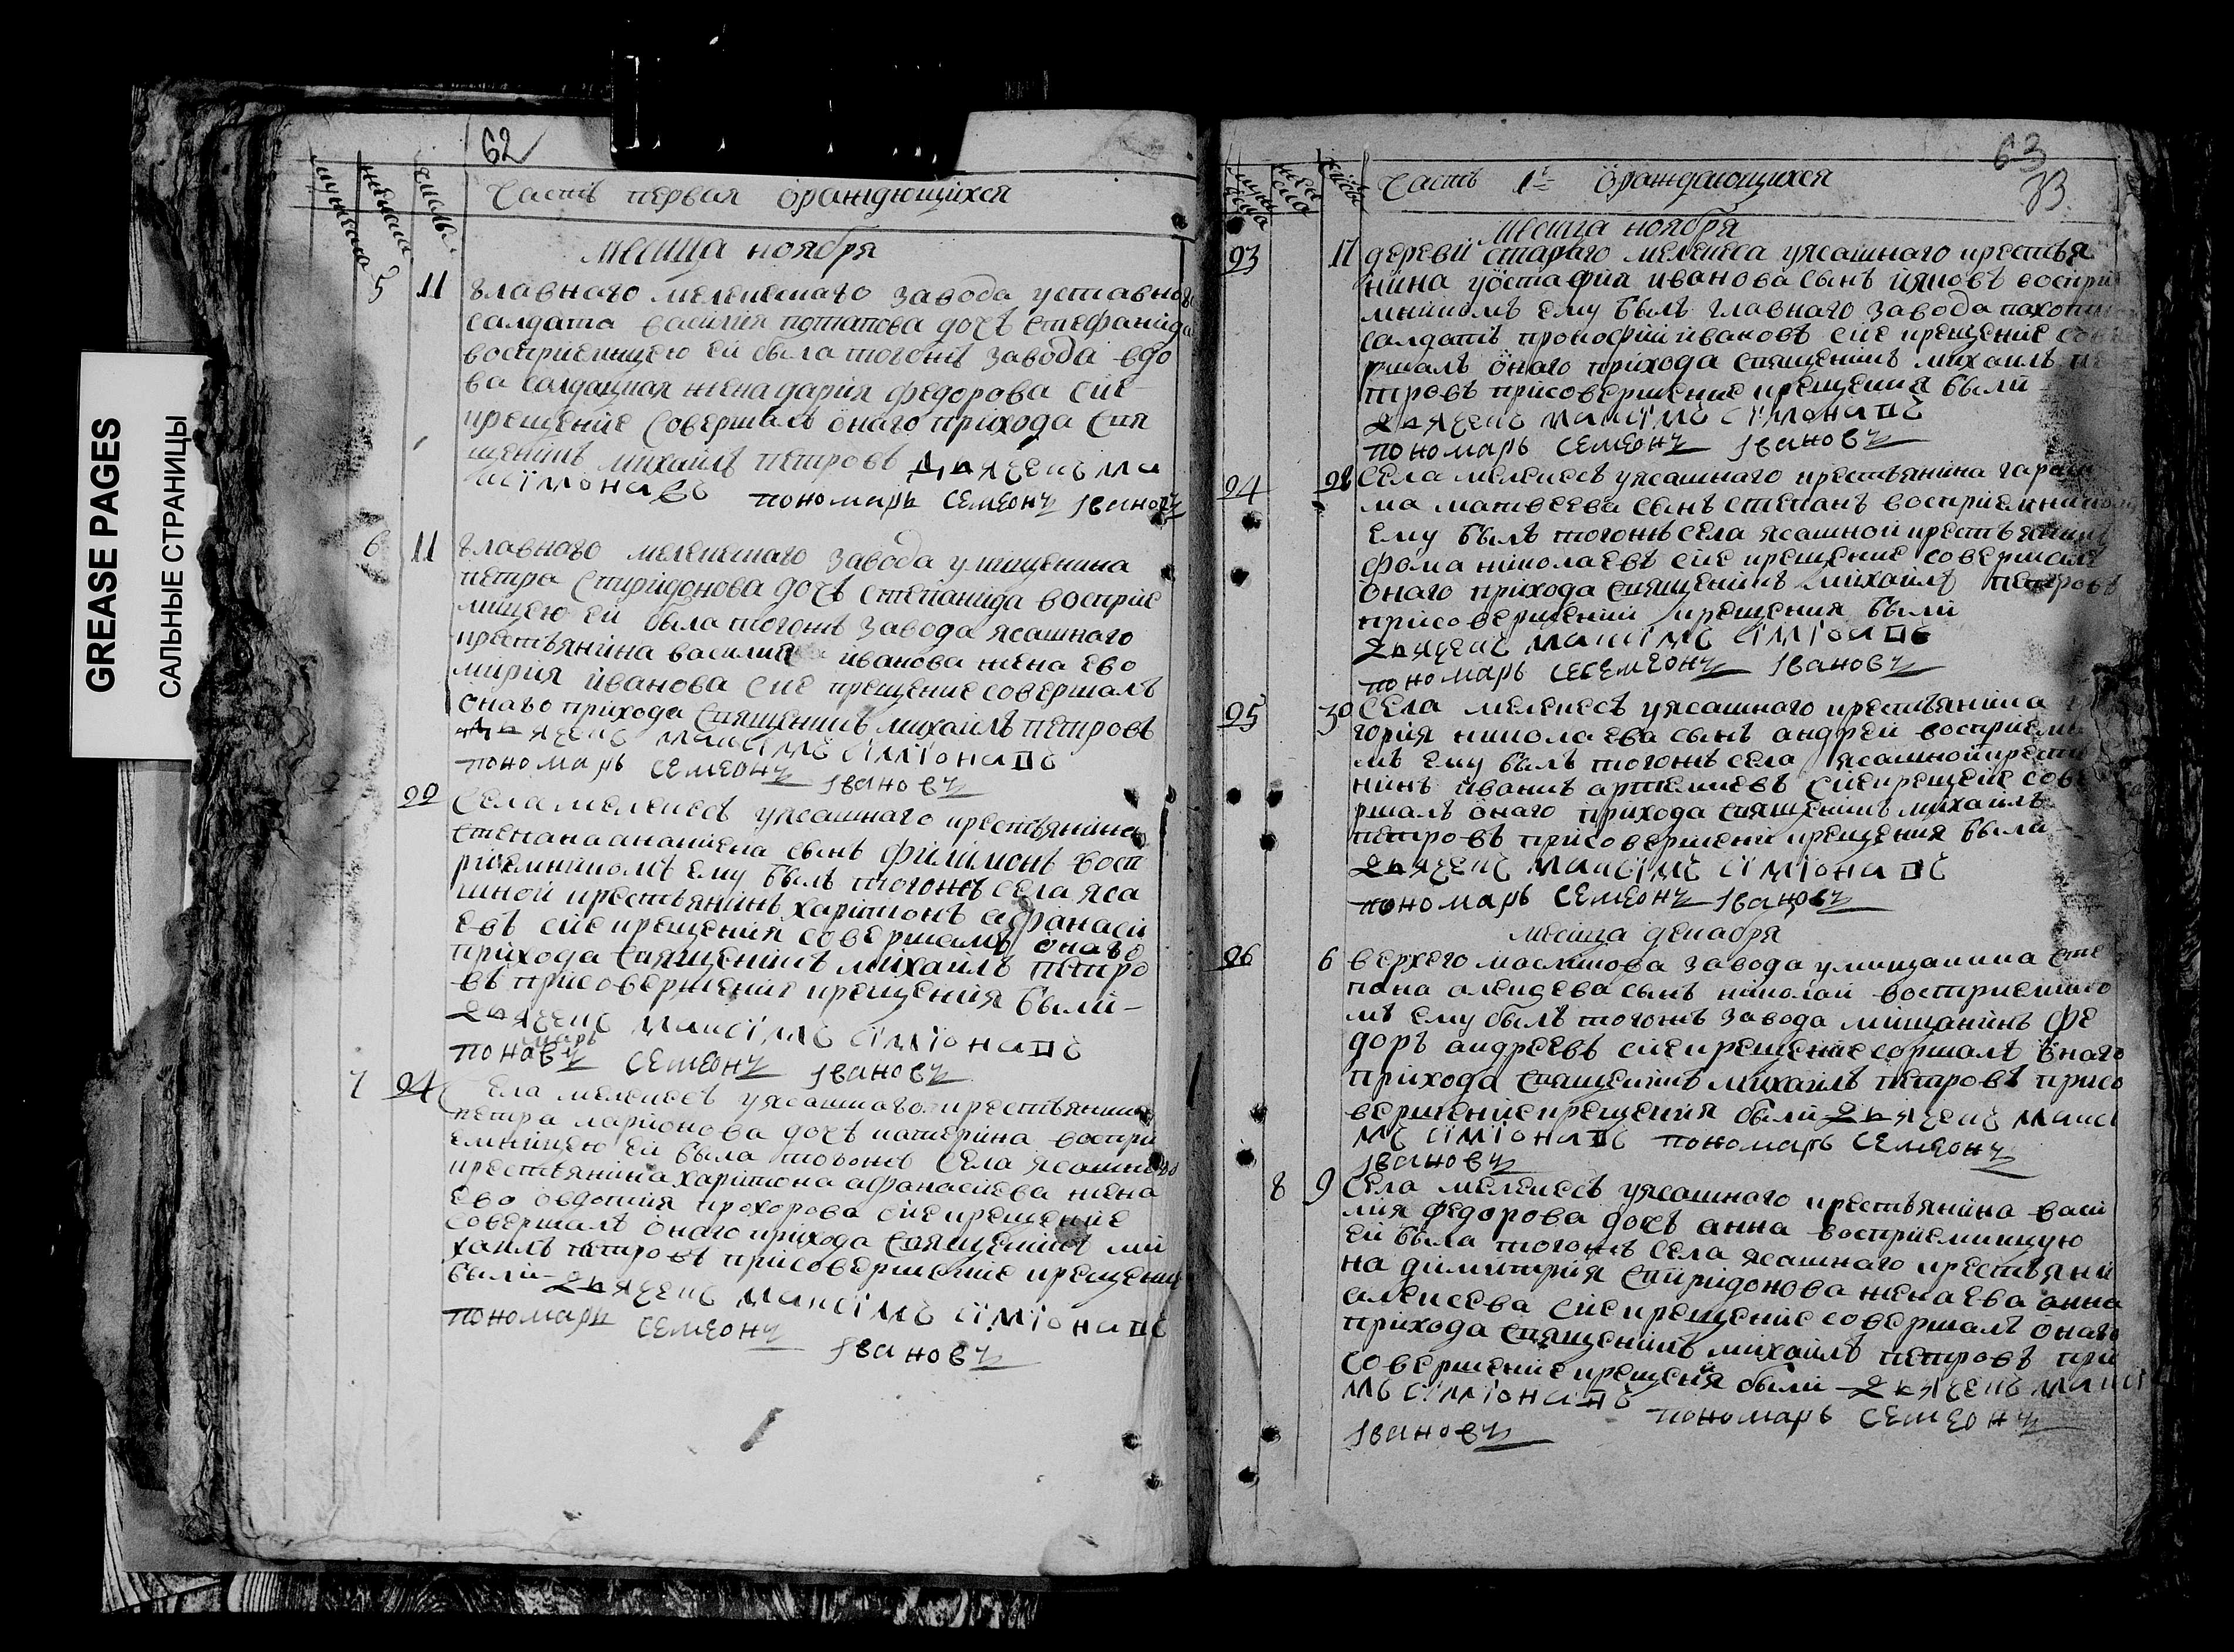 GREASE PAGES
САЛЬНЫЕ СТРАНИЦЫ
62
мужеска
женска
число
Часть первая ораждающихся
месица ноября
5 11 главного мелекескаго завода уставного
салдата василия потапова дочь стефанида
восприемницею ей была тогожъ завода вдо
ва салдацкая жена дария федорова сие
крещение совершалъ онаго прихода свя
щенникъ михаилъ петровъ дьячекъ ма
симоновъ пономарь семеонъ ивановъ
6 11 главного мелекескаго завода у
петра спиридонова дочь степанида восприе
мницею ей была тогожъ завода ясашнаго
крестьянина василия иванова жена ево
мария иванова сие крещение совершалъ
онаго прихода священникъ михаилъ петровъ
дьячекъ максимъ симионовъ
пономарь семеонъ ивановъ
22 села мелекесъ уясашнаго крестьянина
степана ананиева сынъ филимонъ восп
риемникомъ ему былъ тогожъ села яса
шной крестьянинъ харитонъ афанаси
евъ сие крещения совершалъ онаго
прихода священникъ михаилъ петро
въ присовершение крещения были
дьячекъ максимъ симионовъ
пономарь семеонъ ивановъ
7 24 села мелекесъ уясашнаго крестьянина
петра ларионова дочь катерина воспри
емницею ей была тогожъ села ясашнаго
крестьянина харитона афанасиева жена
ево овдотия прохорова сие крещение
совершалъ онаго прихода священникъ ми
хаилъ петровъ присовершение крещения
были дьячекъ максимъ симионовъ
пономарь семеонъ
ивановъ
63
33
мужеска
женска
число
Часть 1я ораждающихся
месица ноября
23 11 деревни стараго мелекеса уясашнаго крестья
нина уостафия иванова сынъ восприе
мникомъ ему былъ главного завода
салдатъ прокофий ивановъ сие крещение сове
ршалъ онаго прихода священникъ михаилъ пе
тровъ присовершение крещения были
дьячекъ максимъ симионовъ
пономарь семеонъ ивановъ
24 28 села мелекесъ уясашнаго крестьянина
матвеева сынъ степанъ восприемникомъ
ему былъ тогожъ села ясашной крестьянинъ
фома николаевъ сие крещение совершалъ
онаго прихода священникъ михаилъ петровъ
присовершении крещения были
дьячекъ максимъ симионовъ
пономарь сесемеонъ ивановъ
25 30 села мелекесъ уясашнаго крестьянина
гория николаева сынъ андрей восприемни
мъ ему былъ тогожъ села ясашной крестья
нинъ иванъ артемиевъ сие крещение сове
ршалъ онаго прихода священникъ михаилъ
петровъ присовершени крещения были
дьячекъ максимъ симионовъ
пономарь семеонъ ивановъ
месица декабря
26 6 верхего завода умищанина сте
пана сынъ николай восприемнико
мъ ему былъ тогожъ завода мищанинъ фе
доръ андреевъ сие крещение соршалъ онаго
прихода священникъ михаилъ петровъ присо
вершение крещения были дьячекъ макси
мъ симионовъ пономарь семеонъ
ивановъ
8 9 села мелекесъ уясашнаго крестьянина васи
лия федорова дочь анна восприемницую
ей была тогожъ села ясашнаго крестьяни
на димитрия спиридонова жена ева анна
алексеева сие крещение совершалъ онаго
прихода священникъ михаилъ петровъ при
совершение крещения были дьячекъ макси
мъ симионовъ пономарь семеонъ
ивановъ